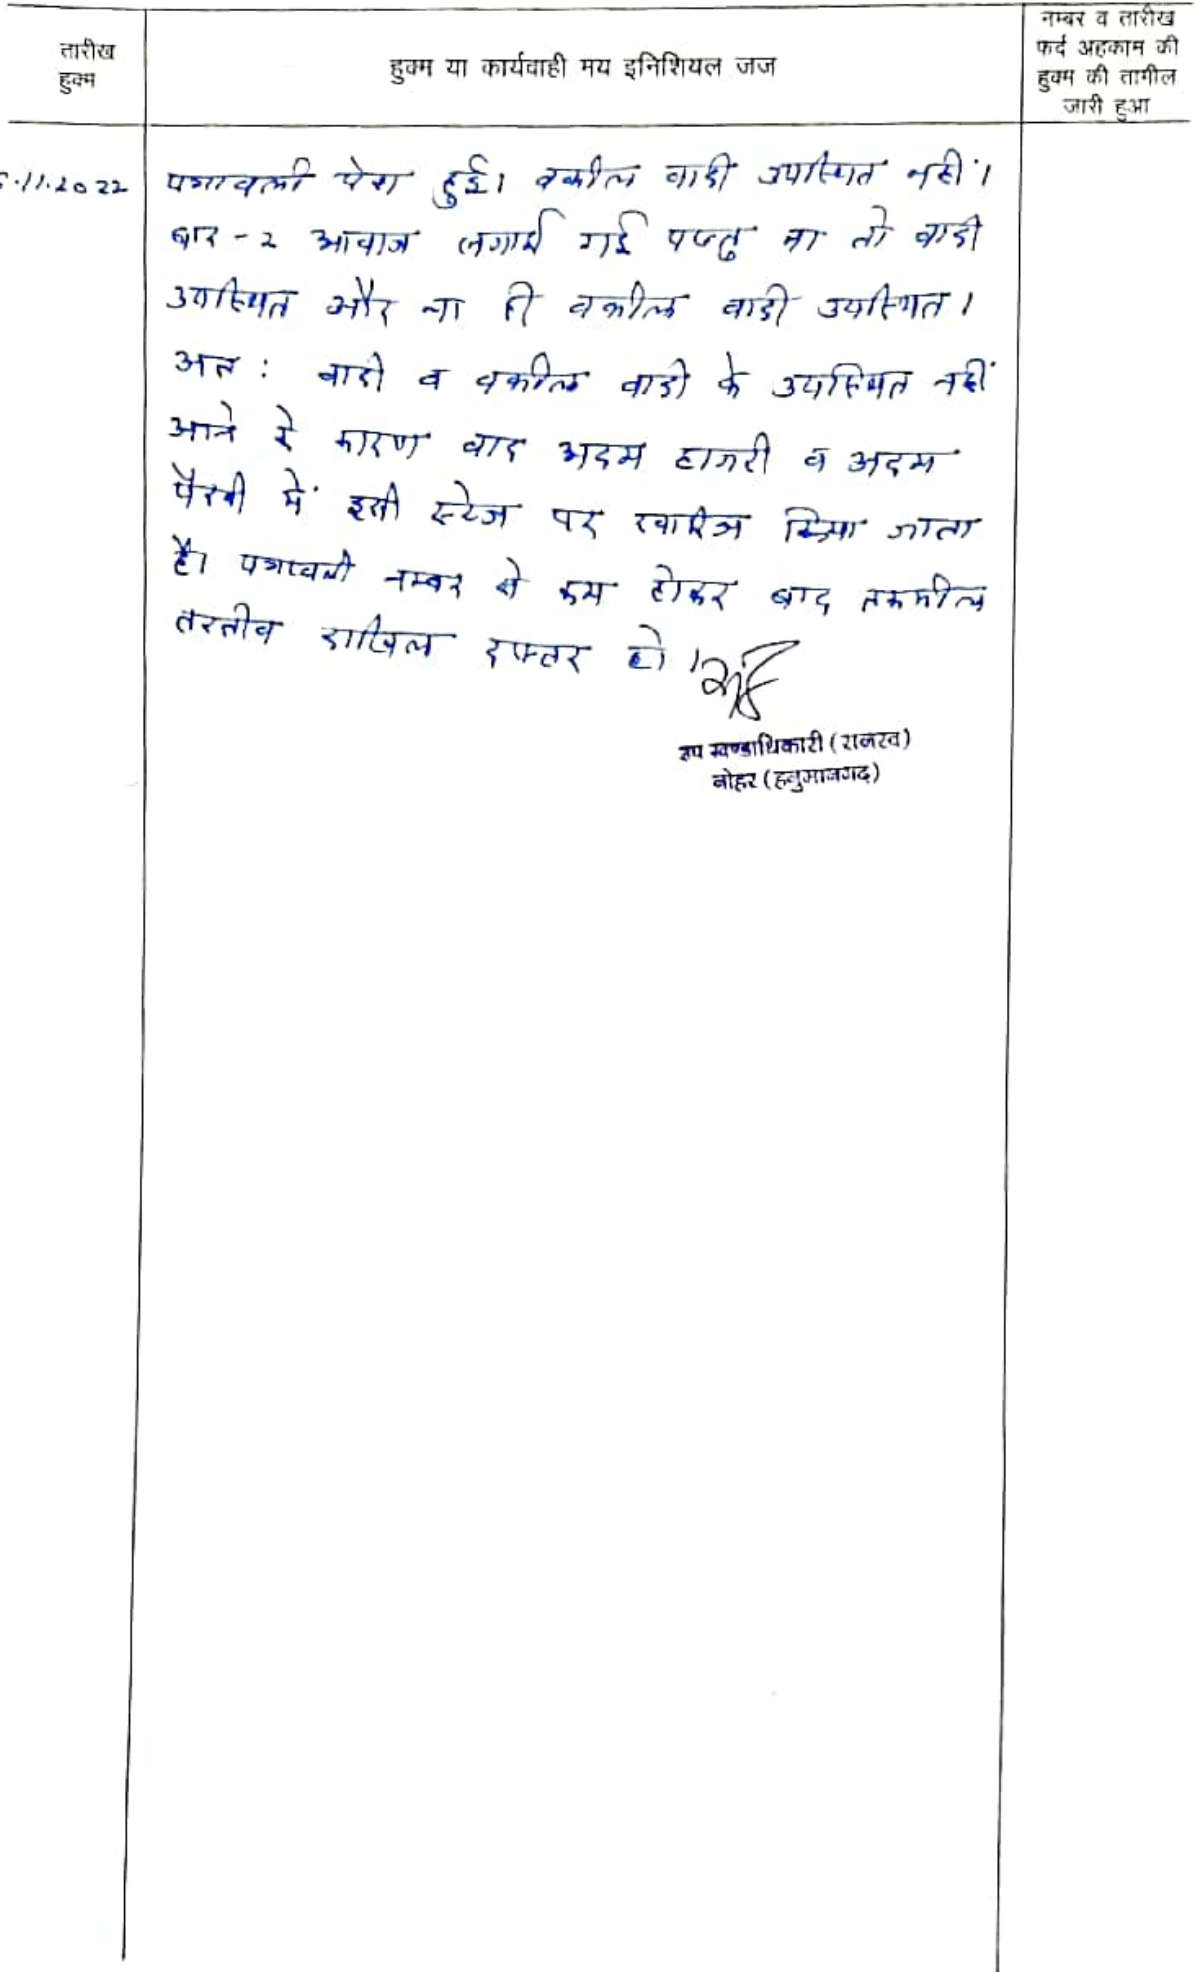 तारीख
हुक्म
हुक्म या कार्यवाही मय इनिशियल जज
नम्बर व तारीख
फर्द अहकाम की
हुक्म की तामील
जारी हुआ
.11.2022
पत्रावली पेश हुई। वकील वादी उपस्थित नहीं।
बार-2 आवाज लगाई गई परन्तु ना तो वादी
उपस्थित और ना ही वकील वादी उपस्थित।
अत: वादी व वकील वादी के उपस्थित नहीं
आने के कारण वाद अदम हाजरी व अदम
पैरवी में इसी स्टेज पर खारिज किया जाता
है। पत्रावली नम्बर से कम होकर बाद तकमील
तरतीब दाखिल दफ्तर हो।
उप खण्डाधिकारी (राजस्व)
नोहर (हनुमानगढ़)